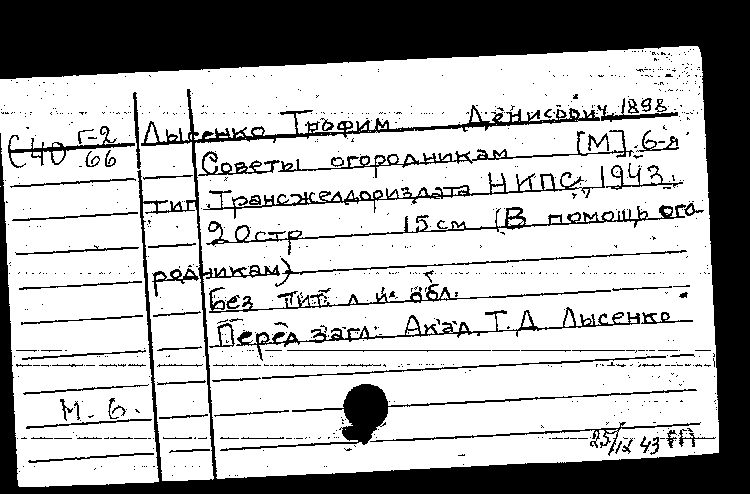 Лысенко, Трофим Денисович, 1898
С40 Г-2
66
Советы огородникам [М], 6-я
тип. Трансжелдориздата НКПС, 1943.
20 стр 15 см (В помощь ого-
родникам)
Без тит. л. и обл.
Перед загл: Акад. Т. Д. Лысенко
М. Б.
25/IX 43